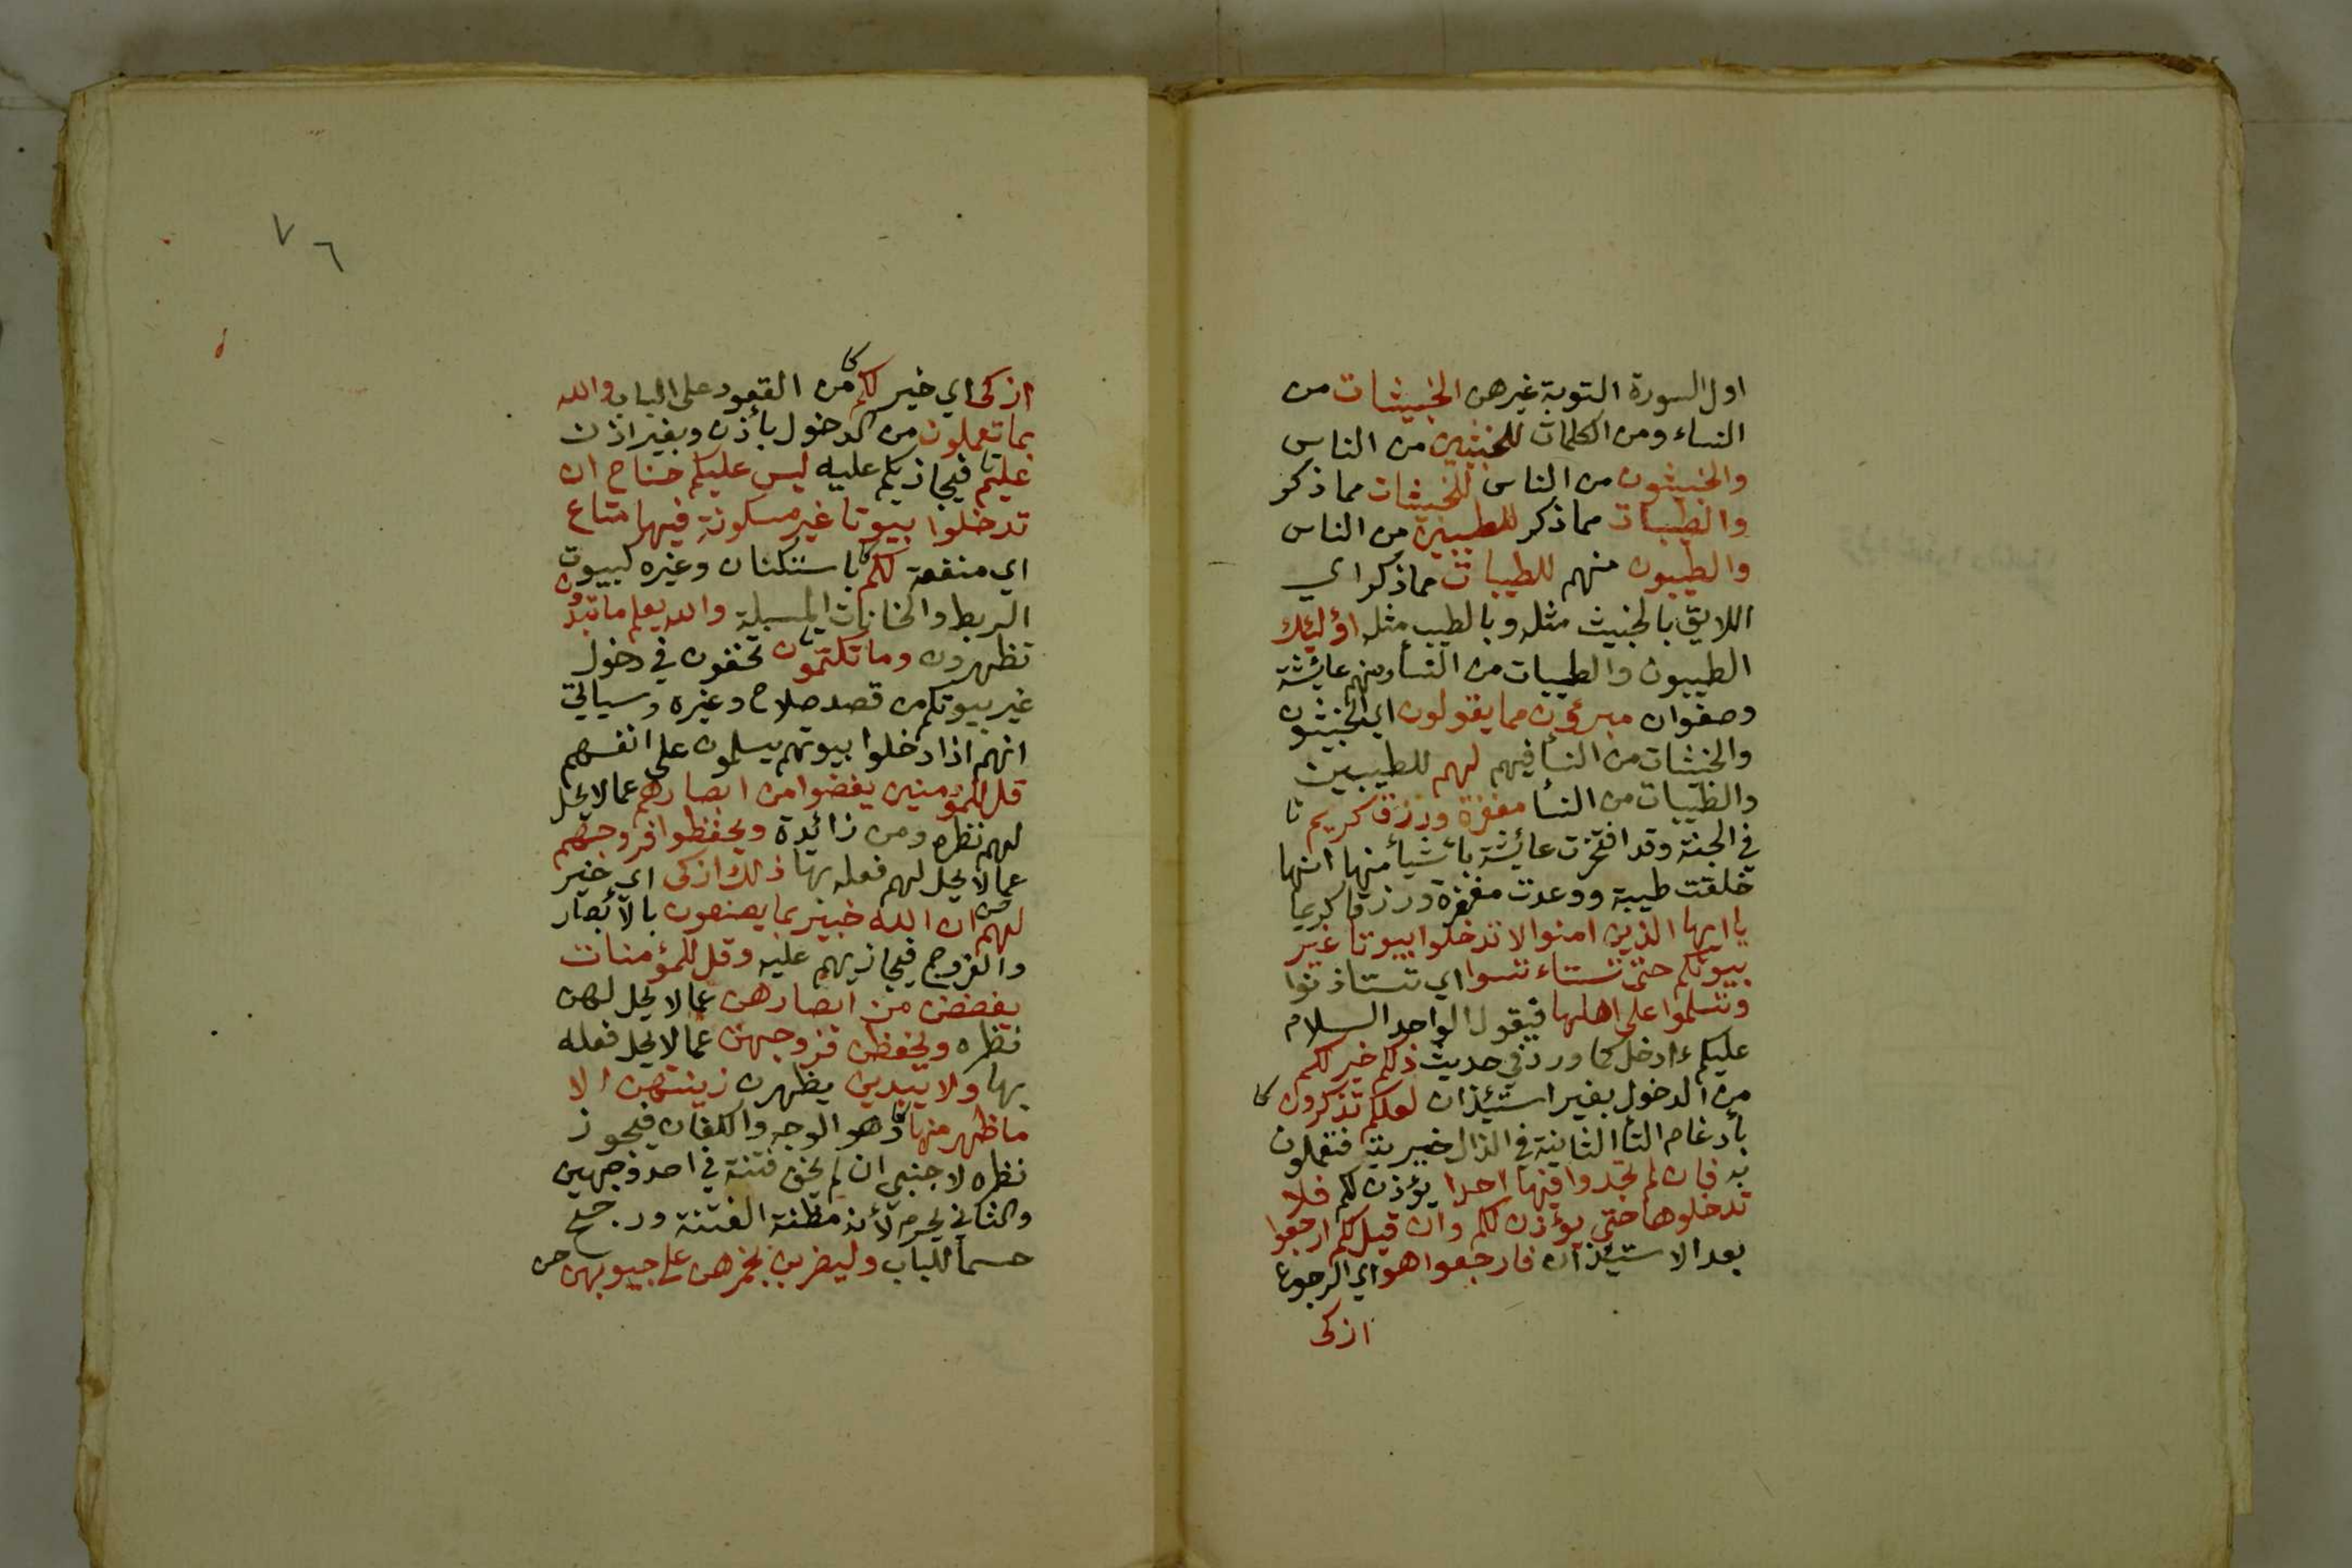 اول السورة التوبة غيرهن الخبيثات من
النساء ومن الكلمات للخبثين من الناس
والخبيثون من الناس للخبيثات مما ذكر
والطيبات مما ذكر للطيبين من الناس
والطيبون منهم للطيبات مما ذكر اي
اللايق بالخبيث مثله وبالطيب مثله اؤلئك
الطيبون والطيبات من النسأ ومنهم عائشة
وصفوان مبرؤن مما يقولون اي الخبيثون
والخبثات من النسأ فيهم لهم للطيبين
والطيبات من النسأ مغفرة ورزق كريم
في الجنة وقد افتخرت عائشة بأشيأ منها انها
خلقت طيبة ووعدت مغفرة ورزقا كريما
يا ايها الذين امنوا لا تدخلوا بيوتا غير
بيوتكم حتى تستاءنسوا اي تستاذنوا
وتسلموا على اهلها فيقول الواحد السلام
عليكم ءادخل كما ورد في حديث ذلكم خير لكم
من الدخول بغير استئذان لعلكم تذكرون كا
بأدغام التأ الثانية في الذال خيريته فتعملون
به فان لم تجدوا فيها احدا يؤذن لكم فلا
تدخلوها حتى يؤذن لكم وان قيل لكم ارجعوا
بعد الاستئذان فارجعوا هو اي الرجوع
ازكى
٧٦
ازكى اي خير لكم كا من القعود على الباب والله
بما تعملون من الدخول بأذن وبغير اذن
عليم فيجازيكم عليه ليس عليكم جناح ان
تدخلوا بيوتا غير مسكونة فيها متاع
اي منفعة لكم باستكنان وغيره كبيوت
الربط والخانات المسبلة والله يعلم ما تبدون
تظهرون وما تكتمون تخفون في دخول
غير بيوتكم من قصد صلاح وغيره وسياتي
انهم اذا دخلوا بيوتهم يسلمون على انفسهم
قل للمؤمنين يغضوا من ابصارهم عما لا يحل
لهم نظره ومن زائدة ويحفظوا فروجهم
عما لا يحل لهم فعله بها ذلك ازكى اي خير
لهم ان الله خبير بما يصنعون بالأبصار
والفروج فيجازيهم عليه وقل للمؤمنات
يغضضن من ابصارهن عما لا يحل لهن
نظره ويحفظن فروجهن عما لا يحل فعله
بها ولا يبدين يظهرن زينتهن الا
ما ظهر منها كا وهو الوجه والكفان فيجوز
نظره لاجنبي ان لم يخف فتنة في احد وجهين
والثاني يحرم لأنه مظنة الفتنة ورجح
حسما للباب وليضربن بخمرهن على جيوبهن